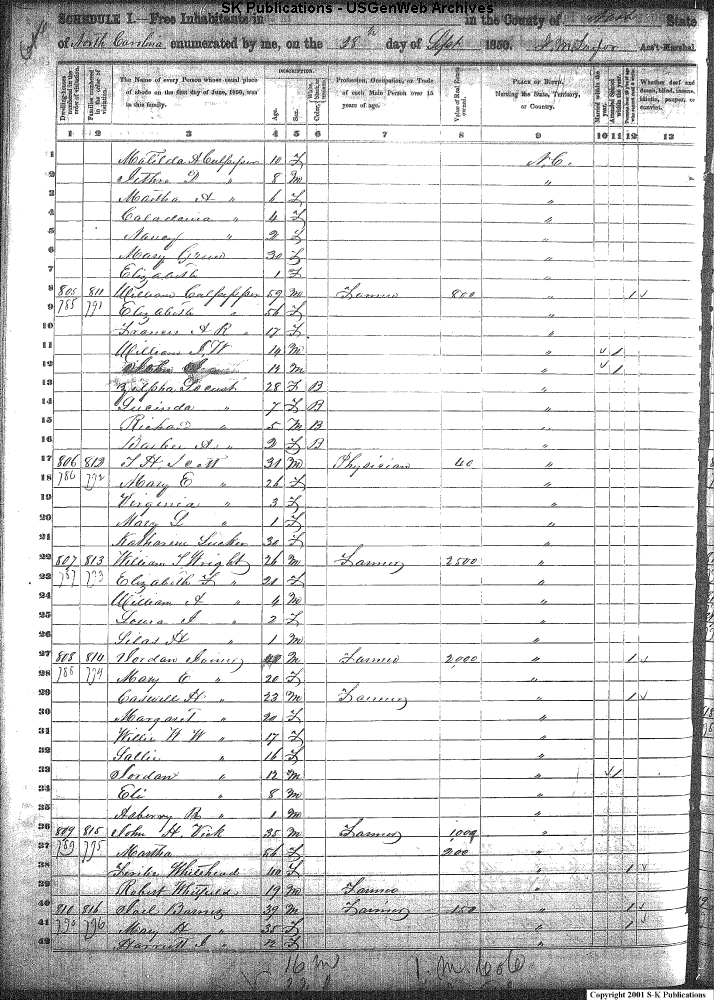 SK Publications - USGenWeb Archives
SCHEDULE I.—Free Inhabitants in in the County of Nash State
of North Carolina enumerated by me, on the 28th day of Sept 1850. Ass't Marshal.
Dwelling-houses numbered in the order of visitation.
Families numbered in the order of visitation.
The Name of every Person whose usual place of abode on the first day of June, 1850, was in this family.
DESCRIPTION.
Age.
Sex.
Color, White, black, or mulatto.
Profession, Occupation, or Trade of each Male Person over 15 years of age.
Value of Real Estate owned.
PLACE OF BIRTH, Naming the State, Territory, or Country.
Married within the year.
Attended School within the year.
Whether deaf and dumb, blind, insane, idiotic, pauper, or convict.
1 2 3 4 5 6 7 8 9 10 11 12 13
1 Matilda A Culpepper 10 F N.C.
2 Jethro D " 8 M "
3 Martha A " 6 F "
4 Caladonia " 4 F "
5 Nancy " 2 F "
6 Mary 30 F "
7 Elizabeth 1 F "
8 805 811 William Culpepper 59 M Farmer 800 " 1
9 785 791 Elizabeth " 56 F "
10 Frances A R " 17 F "
11 William J. W 14 M " 1
12 John 12 M " 1
13 Zilpha Locust 28 F B "
14 Lucinda " 7 F B "
15 Richard " 5 M B "
16 A " 2 F B "
17 806 812 J H Scott 31 M Physician 40 "
18 786 792 Mary E " 26 F "
19 Virginia " 3 F "
20 Mary " 1 F "
21 Katharine Tucker 30 F "
22 807 813 William T Wright 26 M Farmer 2500 "
23 787 793 Elizabeth F " 21 F "
24 William A " 4 M "
25 Louisa " 2 F "
26 Silas H " 1 M "
27 808 814 Jordan Joiner M Farmer 2,000 " 1
28 788 794 Mary " 20 F "
29 Caswell H " 23 M Farmer " 1
30 Margaret " 20 F "
31 Willie W W " 17 F "
32 Sallie " 16 F "
33 Jordan " 12 M " 1
34 Eli " 8 M "
35 Asberry R " 1 M "
36 809 815 John H Vick 35 M Farmer 1,000 "
37 789 795 Martha 56 F 200 "
38 Whitehead 40 F " 1
39 Robert Whitfield 19 M Farmer "
40 810 816 Joel Barnes 39 M Farmer 150 " 1
41 790 796 Mary A " 35 F " 1
42 Harriett J " 12 F "
16 M
Copyright 2001 S-K Publications